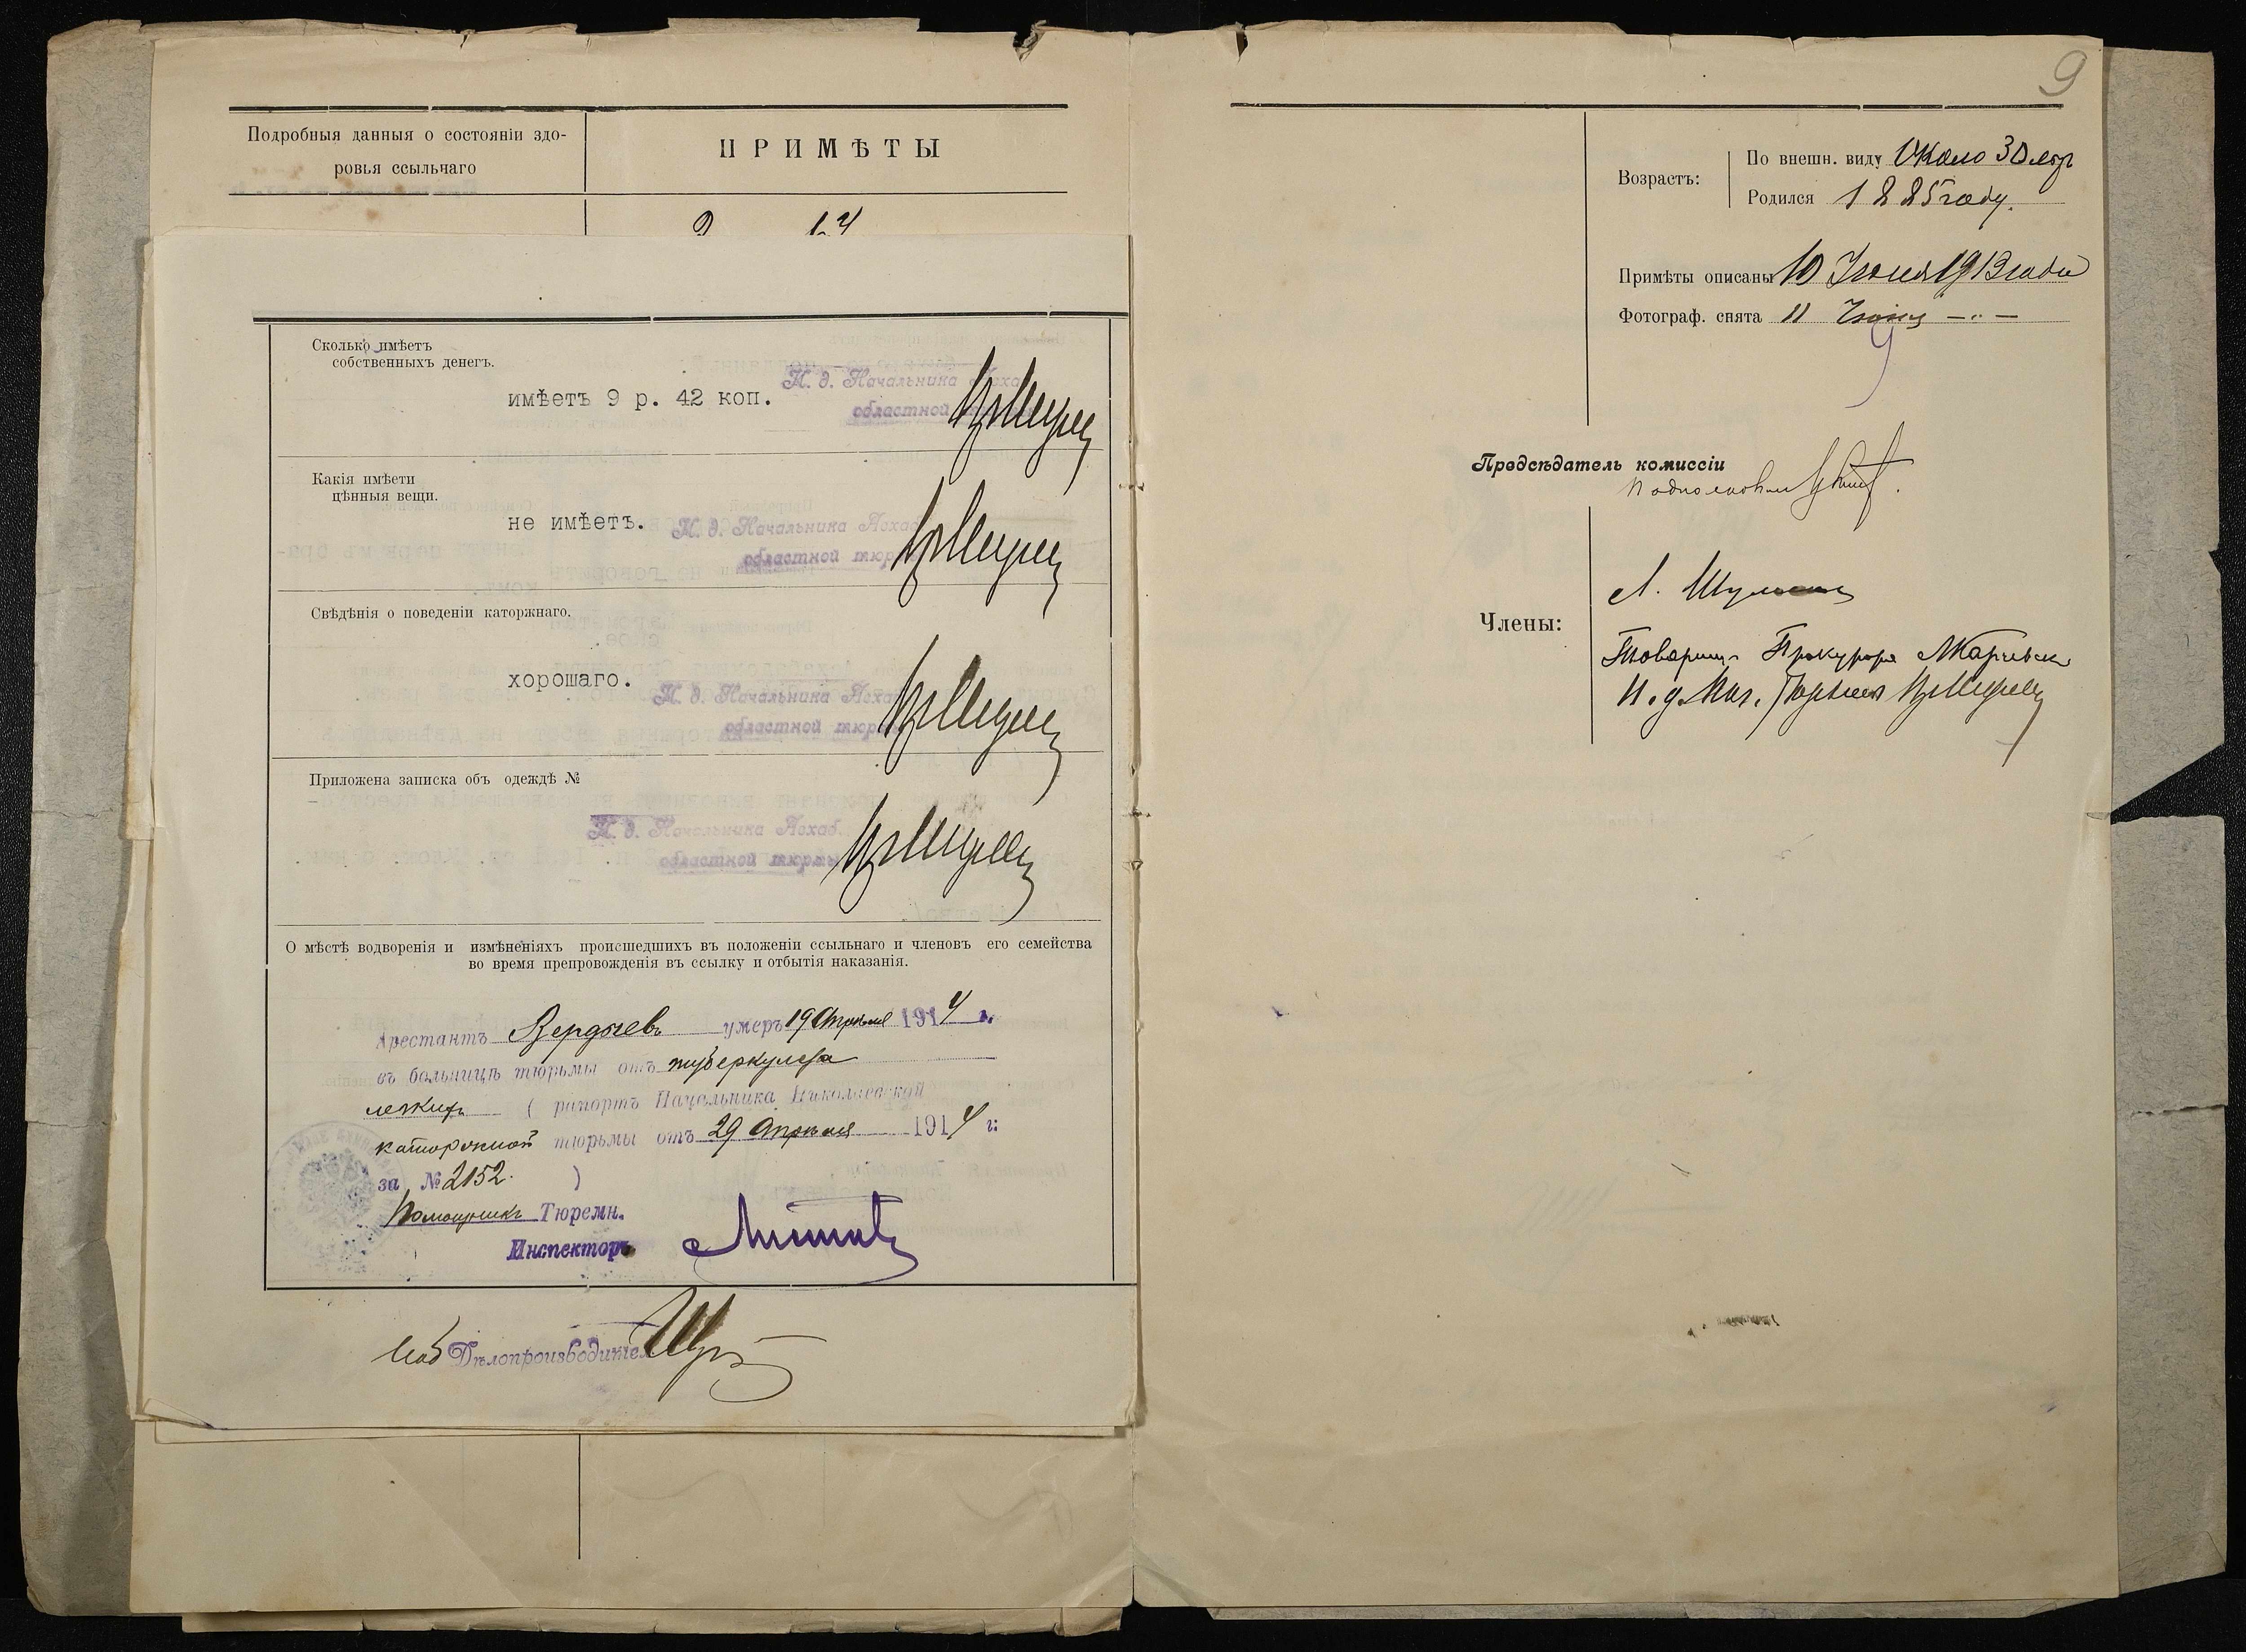 Подробныя данныя о состоянiи здо-
ровья ссыльнаго
ПРИМѢТЫ
Сколько имѣетъ
собственныхъ денегъ.
имѣетъ 9 р. 42 коп.
И. д. Начальника Асхаб.
областной
Какiя имѣети
цѣнныя вещи.
не имѣетъ.
И. д. Начальника Асхаб.
областной тюрьмы
Свѣдѣнiя о поведенiи каторжнаго.
хорошаго.
И. д. Начальника Асхаб.
областной тюрьмы
Приложена записка объ одеждѣ №
И. д. Начальника Асхаб.
областной тюрьмы
О мѣстѣ водворенiя и измѣненiяхъ происшедшихъ въ положенiи ссыльнаго и членовъ его семейства
во время препровожденiя въ ссылку и отбытiя наказанiя.
Арестантъ Бердыевъ умеръ 19 Апрѣля 1914 г.
въ больницѣ тюрьмы отъ туберкулеза
легкихъ ( рапортъ Начальника Николаевской
каторжной тюрьмы отъ 29 Апрѣля 1914 г.
за № 2152. )
Помощникъ Тюремн.
Инспектора
Дѣлопроизводител
9
Возрастъ:
По внешн. виду Около 30 лѣтъ
Родился 1885 году.
Примѣты описаны 10 Iюня 1913 года
Фотограф. снята 11 Iюня —"—
Предсѣдатель комиссiи
Подполковник
Члены:
Л.
Товарищ Прокурора
И. д. Нач. Тюрьмы